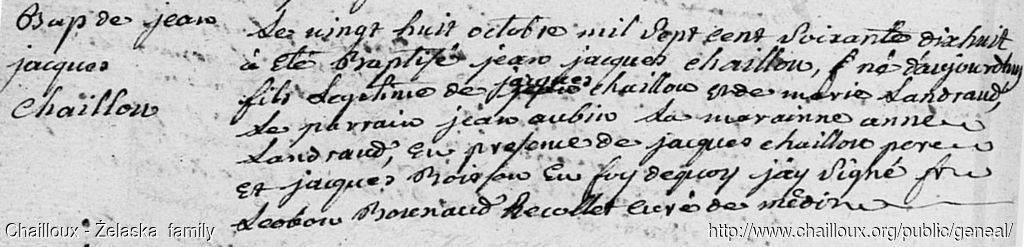 Bap de jean
jacques
Chaillou
Le vingt huit octobre mil sept cent soixante dixhuit
à été Baptisé jean jacques chaillou, né d'aujourd'huy
fils Legitime de jacques chaillou et de marie Landraud,
Le parrain jean aubin La maraine anne
Landraud, en presence de jacques chaillou pere
et jacques Boisson en foy de quoy j'ay signé fr
Bounaud Recollet curé de
Chailloux - Żelaska family
http://www.chailloux.org/public/geneal/